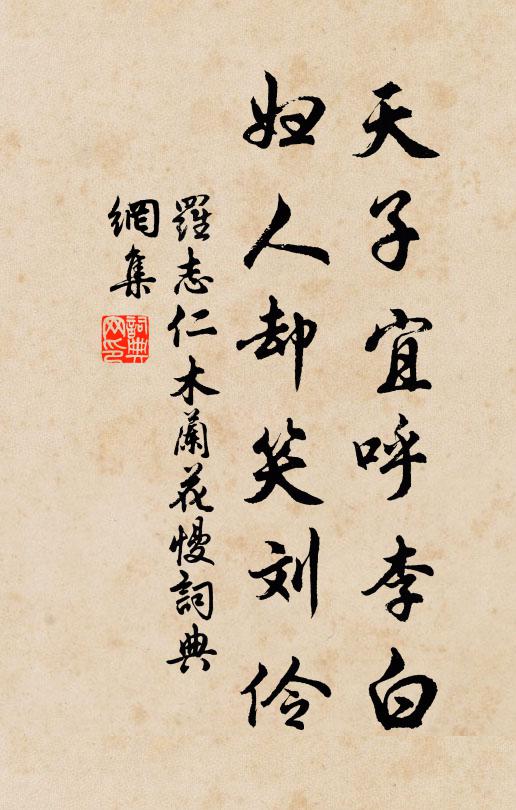 天子宜呼李白
妇人却笑刘伶
羅志仁木蘭花慢詞典
網集
詞典
网印